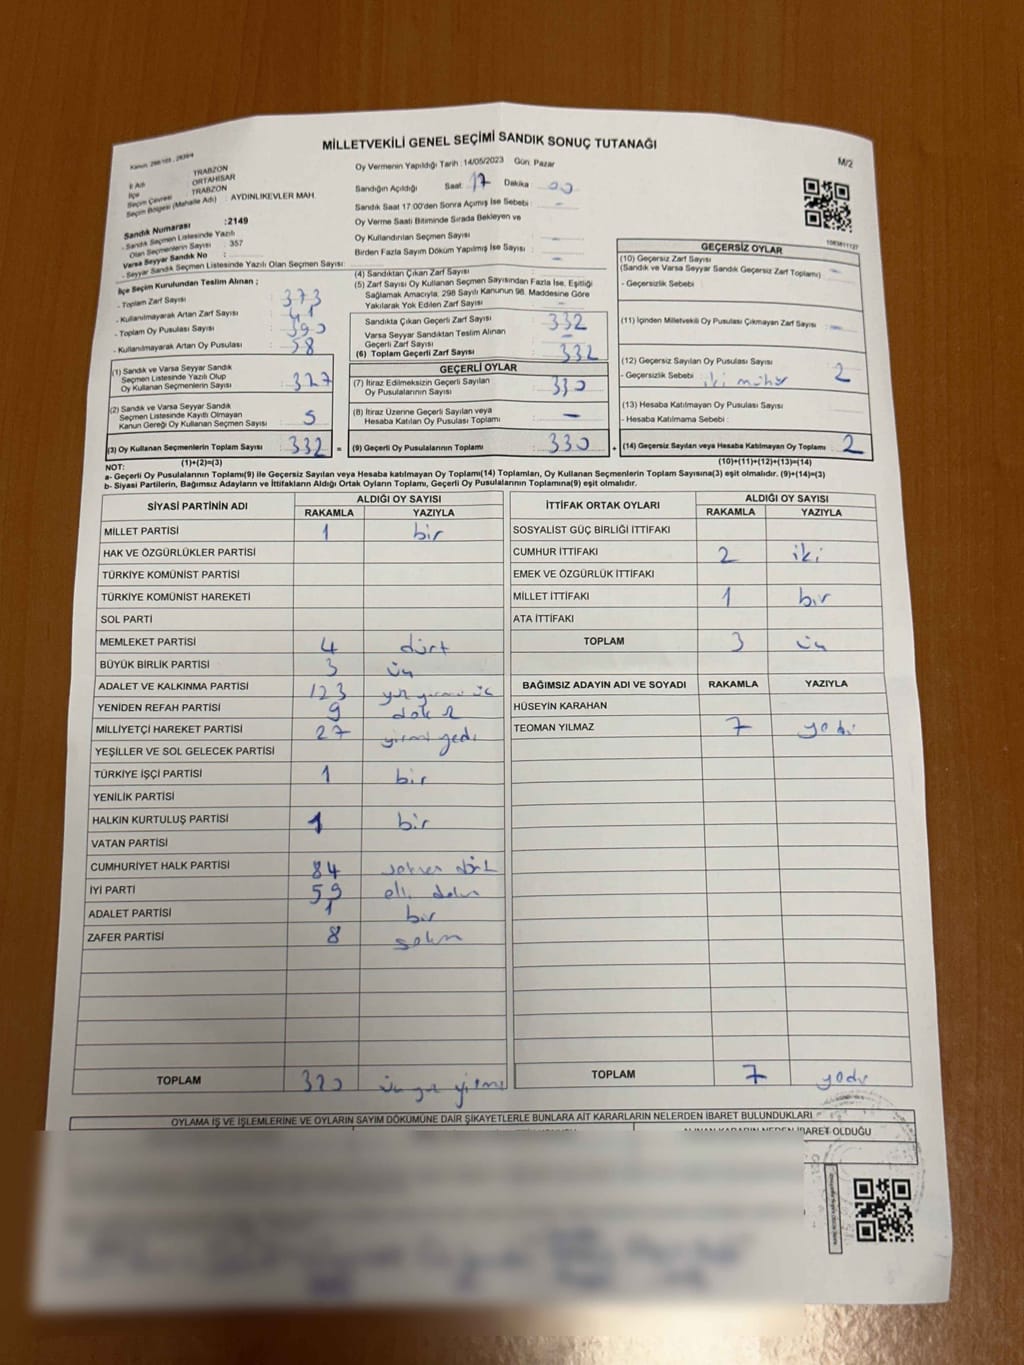 MİLLETVEKİLİ GENEL SEÇİMİ SANDIK SONUÇ TUTANAĞI
M/2
İl Adı TRABZON
İlçe ORTAHİSAR
Seçim Çevresi TRABZON
Seçim Bölgesi (Mahalle Adı) : AYDINLIKEVLER MAH.
Sandık Numarası :2149
- Sandık Seçmen Listesinde Yazılı
Olan Seçmenlerin Sayısı : 357
Varsa Seyyar Sandık No :
- Seyyar Sandık Seçmen Listesinde Yazılı Olan Seçmen Sayısı:
İlçe Seçim Kurulundan Teslim Alınan ;
- Toplam Zarf Sayısı : 373
- Kullanılmayarak Artan Zarf Sayısı : 41
- Toplam Oy Pusulası Sayısı : 390
- Kullanılmayarak Artan Oy Pusulası : 58
(1) Sandık ve Varsa Seyyar Sandık
Seçmen Listesinde Yazılı Olup
Oy Kullanan Seçmenlerin Sayısı : 327
(2) Sandık ve Varsa Seyyar Sandık
Seçmen Listesinde Kayıtlı Olmayan
Kanun Gereği Oy Kullanan Seçmen Sayısı : 5
(3) Oy Kullanan Seçmenlerin Toplam Sayısı : 332 =
(1)+(2)=(3)
Oy Vermenin Yapıldığı Tarih : 14/05/2023 Gün: Pazar
Sandığın Açıldığı Saat: 17 Dakika : 00
Sandık Saat 17:00'den Sonra Açımış İse Sebebi : -
Oy Verme Saati Bitiminde Sırada Bekleyen ve
Oy Kullandırılan Seçmen Sayısı : -
Birden Fazla Sayım Döküm Yapılmış İse Sayısı : -
(4) Sandıktan Çıkan Zarf Sayısı :
(5) Zarf Sayısı Oy Kullanan Seçmen Sayısından Fazla İse, Eşitliği
Sağlamak Amacıyla, 298 Sayılı Kanunun 98. Maddesine Göre
Yakılarak Yok Edilen Zarf Sayısı : -
Sandıkta Çıkan Geçerli Zarf Sayısı : 332
Varsa Seyyar Sandıktan Teslim Alınan
Geçerli Zarf Sayısı : -
(6) Toplam Geçerli Zarf Sayısı : 332
GEÇERLİ OYLAR
(7) İtiraz Edilmeksizin Geçerli Sayılan
Oy Pusulalarının Sayısı : 330
(8) İtiraz Üzerine Geçerli Sayılan veya
Hesaba Katılan Oy Pusulası Toplamı : -
(9) Geçerli Oy Pusulalarının Toplamı : 330 +
GEÇERSİZ OYLAR
(10) Geçersiz Zarf Sayısı
(Sandık ve Varsa Seyyar Sandık Geçersiz Zarf Toplamı) : -
- Geçersizlik Sebebi :
(11) İçinden Milletvekili Oy Pusulası Çıkmayan Zarf Sayısı : -
(12) Geçersiz Sayılan Oy Pusulası Sayısı : 2
- Geçersizlik Sebebi : iki mühür
(13) Hesaba Katılmayan Oy Pusulası Sayısı :
- Hesaba Katılmama Sebebi :
(14) Geçersiz Sayılan veya Hesaba Katılmayan Oy Toplamı : 2
(10)+(11)+(12)+(13)=(14)
NOT:
a- Geçerli Oy Pusulaları Toplamı(9) ile Geçersiz Sayılan veya Hesaba katılmayan Oy Toplamı(14) Toplamları, Oy Kullanan Seçmenlerin Toplam Sayısına(3) eşit olmalıdır. (9)+(14)=(3)
b- Siyasi Partilerin, Bağımsız Adayların ve İttifakların Aldığı Ortak Oyların Toplamı, Geçerli Oy Pusulalarının Toplamına(9) eşit olmalıdır.
SİYASİ PARTİNİN ADI ALDIĞI OY SAYISI
RAKAMLA YAZIYLA
MİLLET PARTİSİ 1 bir
HAK VE ÖZGÜRLÜKLER PARTİSİ
TÜRKİYE KOMÜNİST PARTİSİ
TÜRKİYE KOMÜNİST HAREKETİ
SOL PARTİ
MEMLEKET PARTİSİ 4 dört
BÜYÜK BİRLİK PARTİSİ 3 üç
ADALET VE KALKINMA PARTİSİ 123 yüz yirmi üç
YENİDEN REFAH PARTİSİ 9 dokuz
MİLLİYETÇİ HAREKET PARTİSİ 27 yirmi yedi
YEŞİLLER VE SOL GELECEK PARTİSİ
TÜRKİYE İŞÇİ PARTİSİ 1 bir
YENİLİK PARTİSİ
HALKIN KURTULUŞ PARTİSİ 1 bir
VATAN PARTİSİ
CUMHURİYET HALK PARTİSİ 84 seksen dört
İYİ PARTİ 59 elli dokuz
ADALET PARTİSİ 1 bir
ZAFER PARTİSİ 8 sekiz
TOPLAM 320 üç yüz yirmi
İTTİFAK ORTAK OYLARI ALDIĞI OY SAYISI
RAKAMLA YAZIYLA
SOSYALİST GÜÇ BİRLİĞİ İTTİFAKI
CUMHUR İTTİFAKI 2 iki
EMEK VE ÖZGÜRLÜK İTTİFAKI
MİLLET İTTİFAKI 1 bir
ATA İTTİFAKI
TOPLAM 3 üç
BAĞIMSIZ ADAYIN ADI VE SOYADI RAKAMLA YAZIYLA
HÜSEYİN KARAHAN
TEOMAN YILMAZ 7 yedi
TOPLAM 7 yedi
OYLAMA İŞ VE İŞLEMLERİNE VE OYLARIN SAYIM DÖKÜMÜNE DAİR ŞİKAYETLERLE BUNLARA AİT KARARLARIN NELERDEN İBARET BULUNDUKLARI
ALINAN KARARIN NEDEN İBARET OLDUĞU